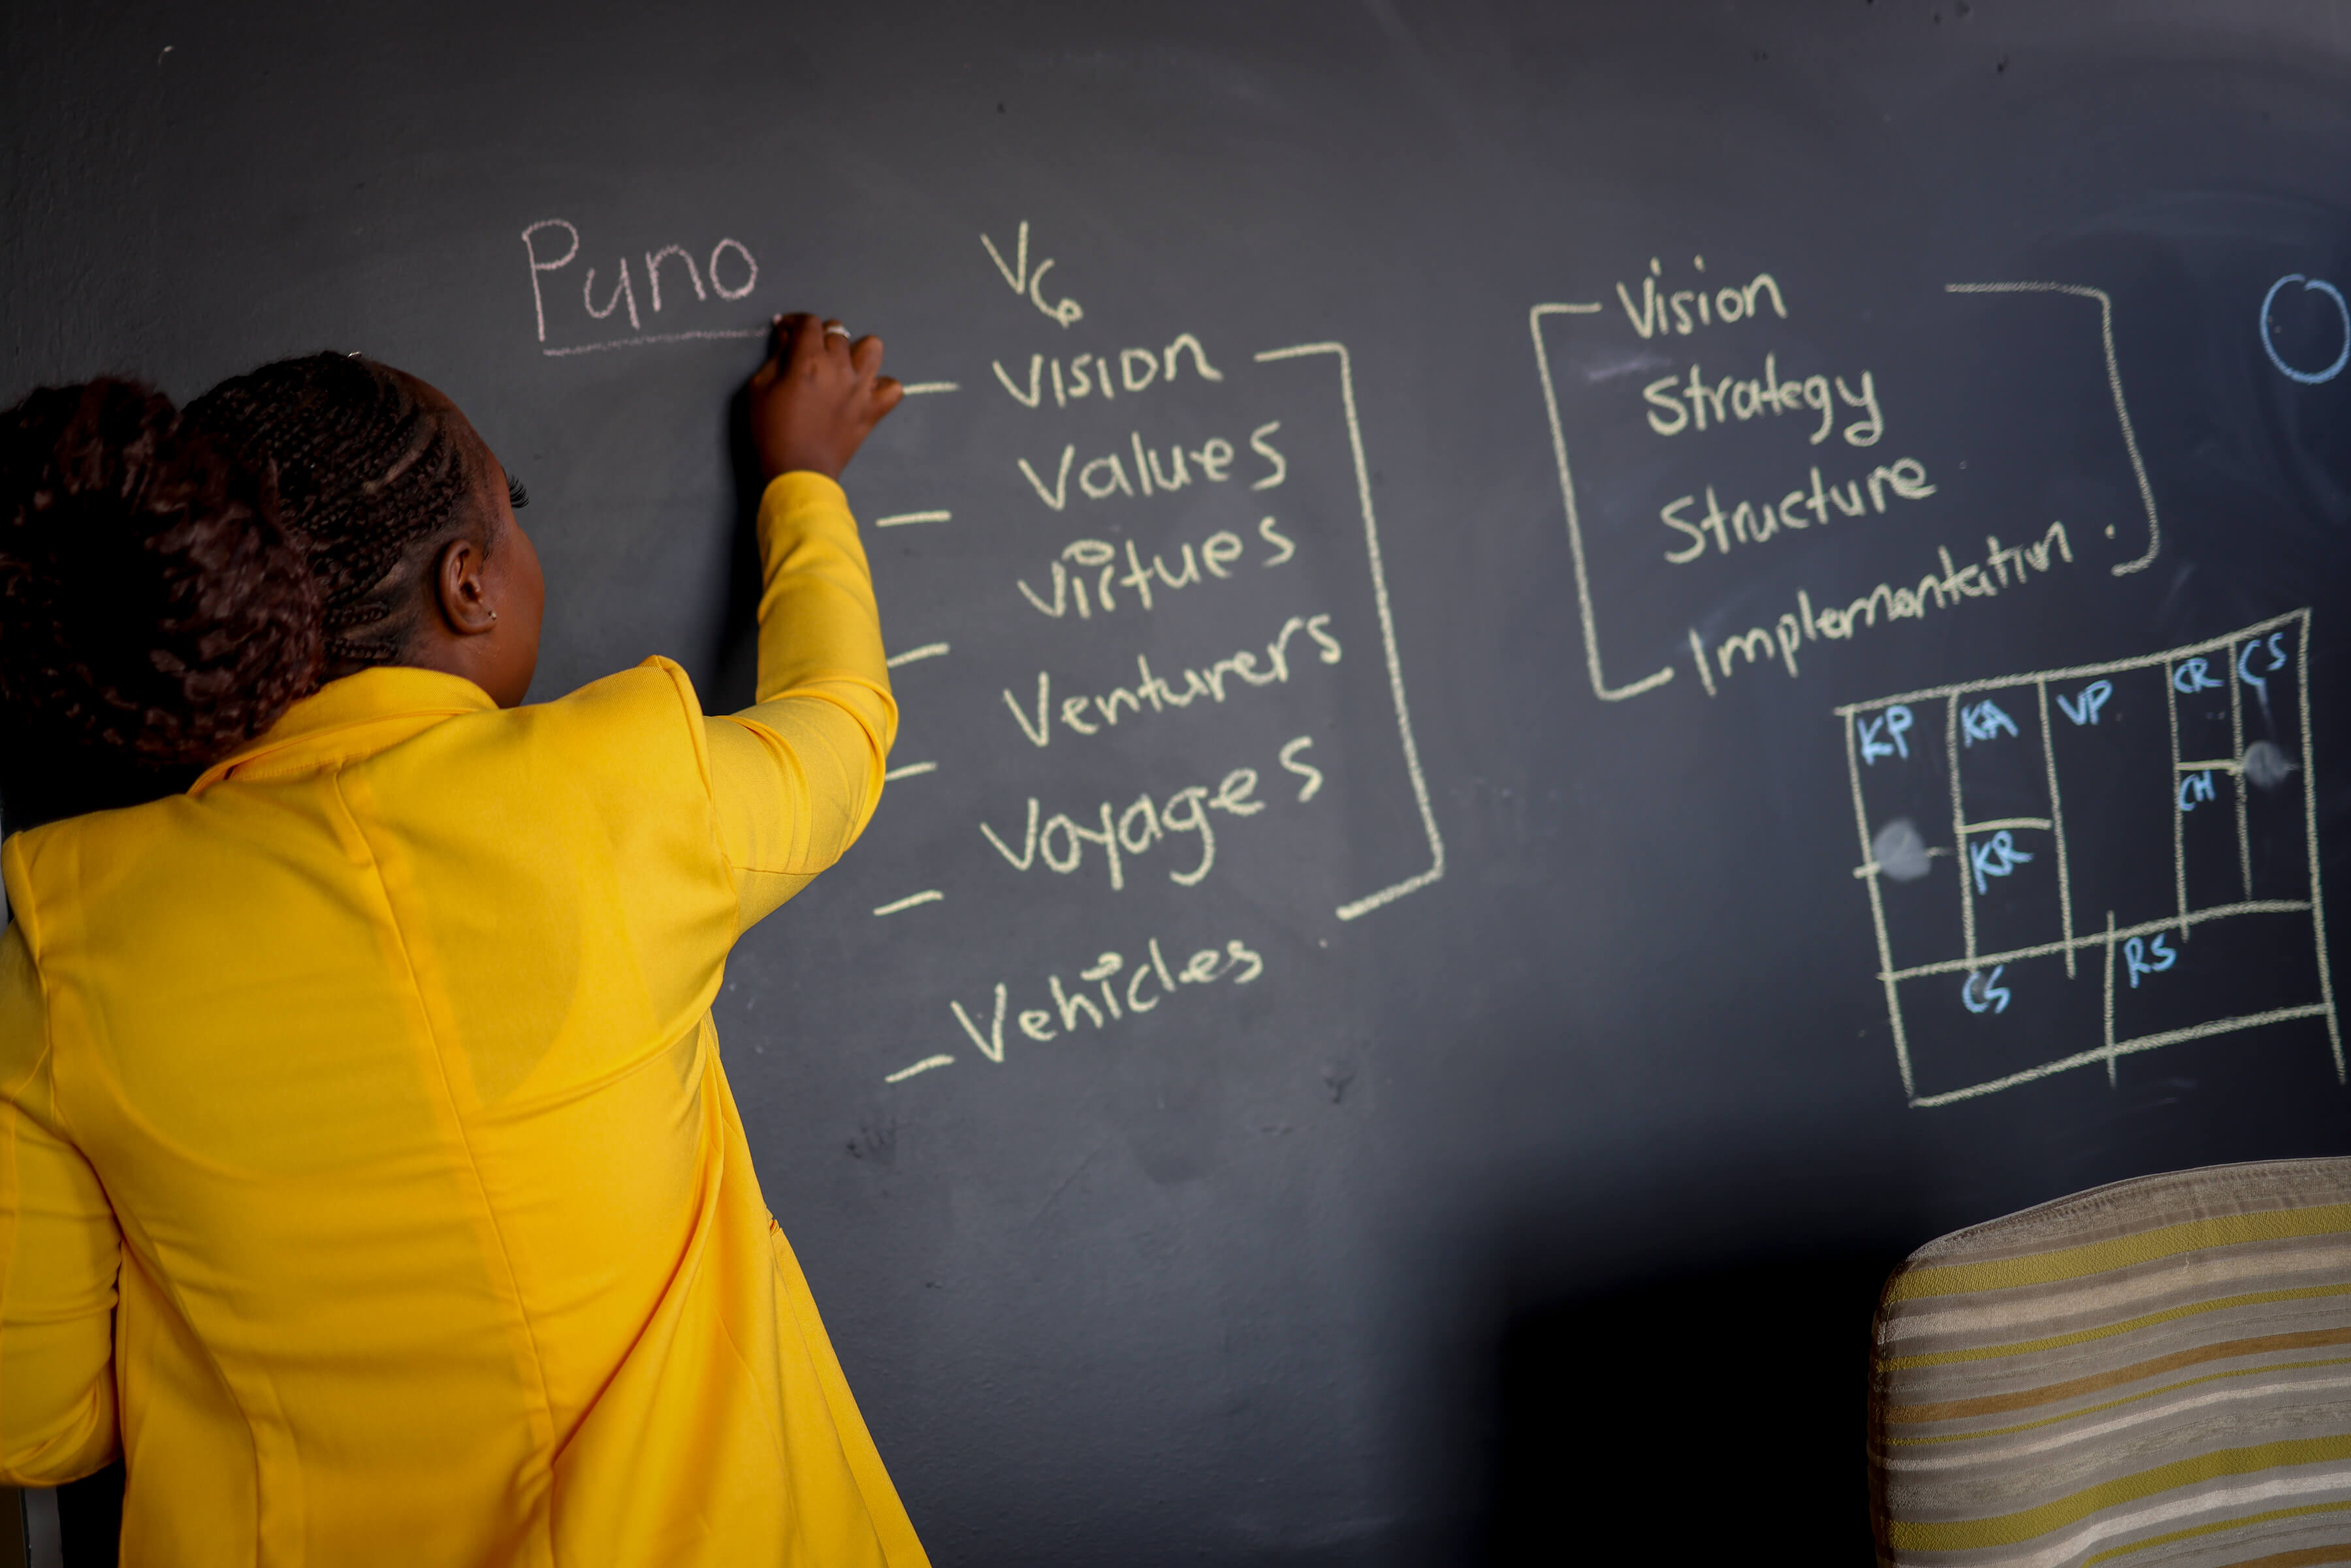 Puno
V6
– VISION
– Values
– Virtues
– Venturers
– Voyages
– Vehicles
Vision
Strategy
Structure
Implementation.
KP KA VP CR CS
KR CH
CS RS